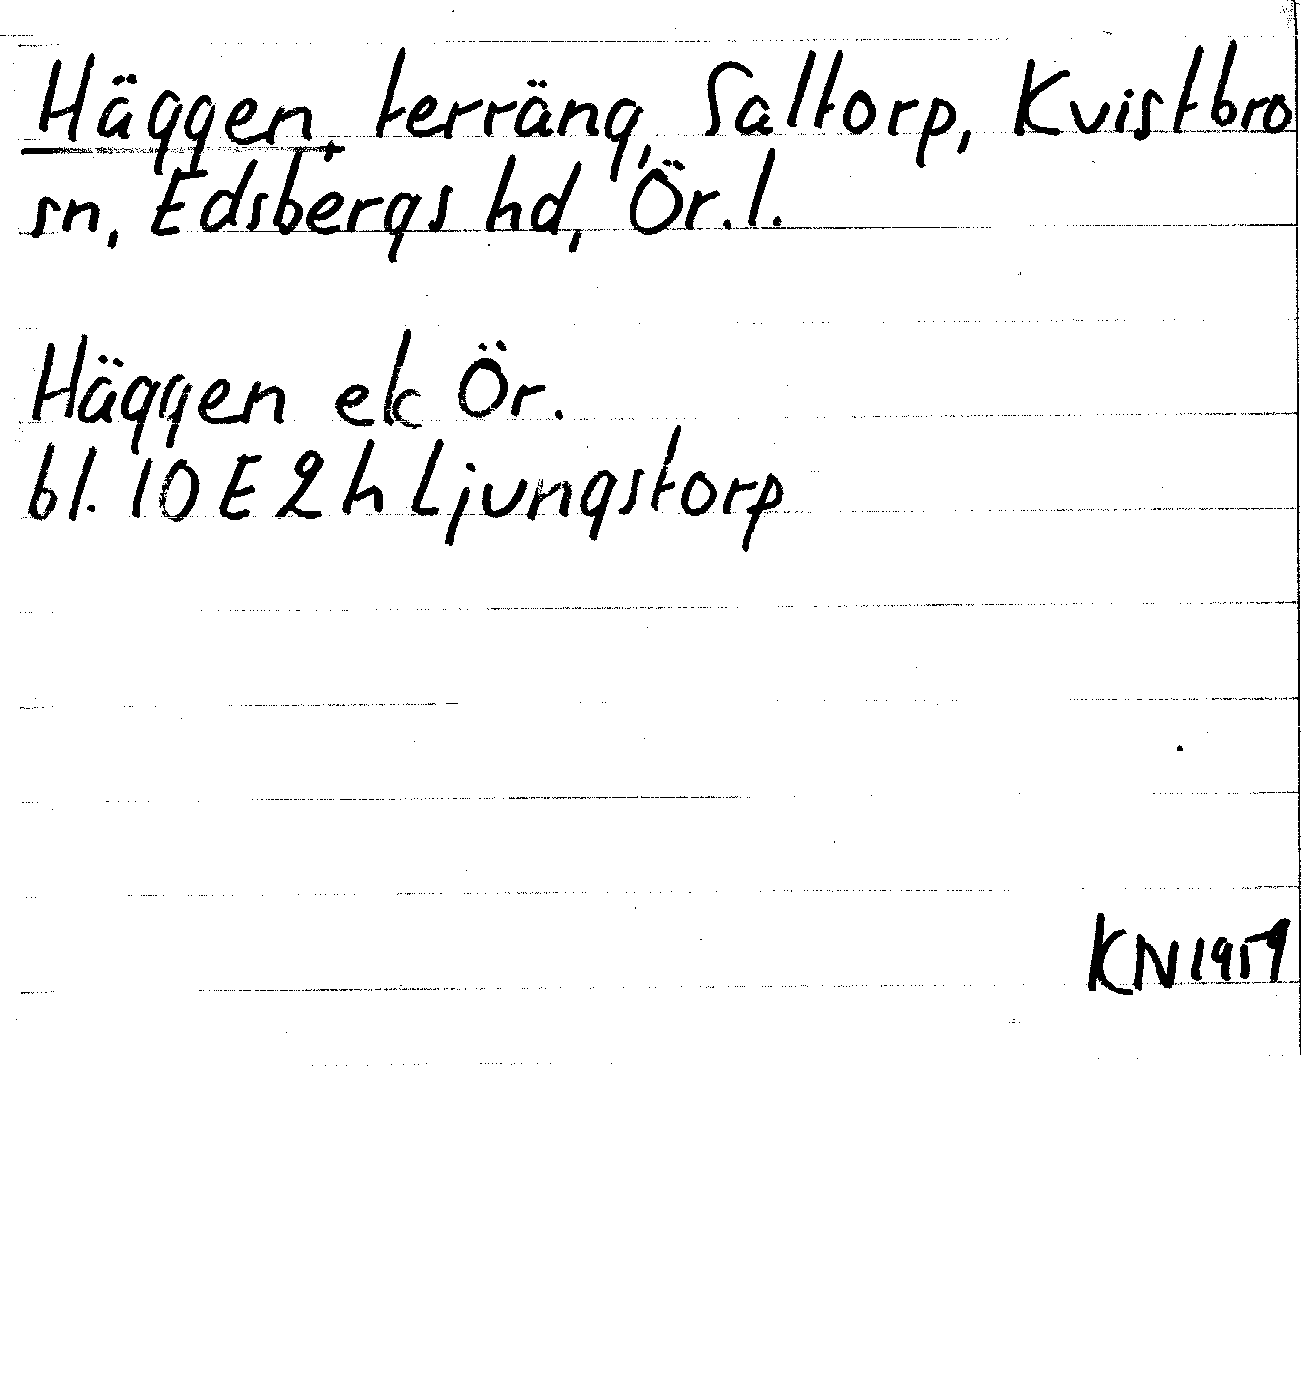 Häggen, terräng, Saltorp, Kvistbro
sn, Edsbergs hd, Ör.l.
Häggen ek Ör.
bl. 10 E 2 h Ljungstorp
KN 1959